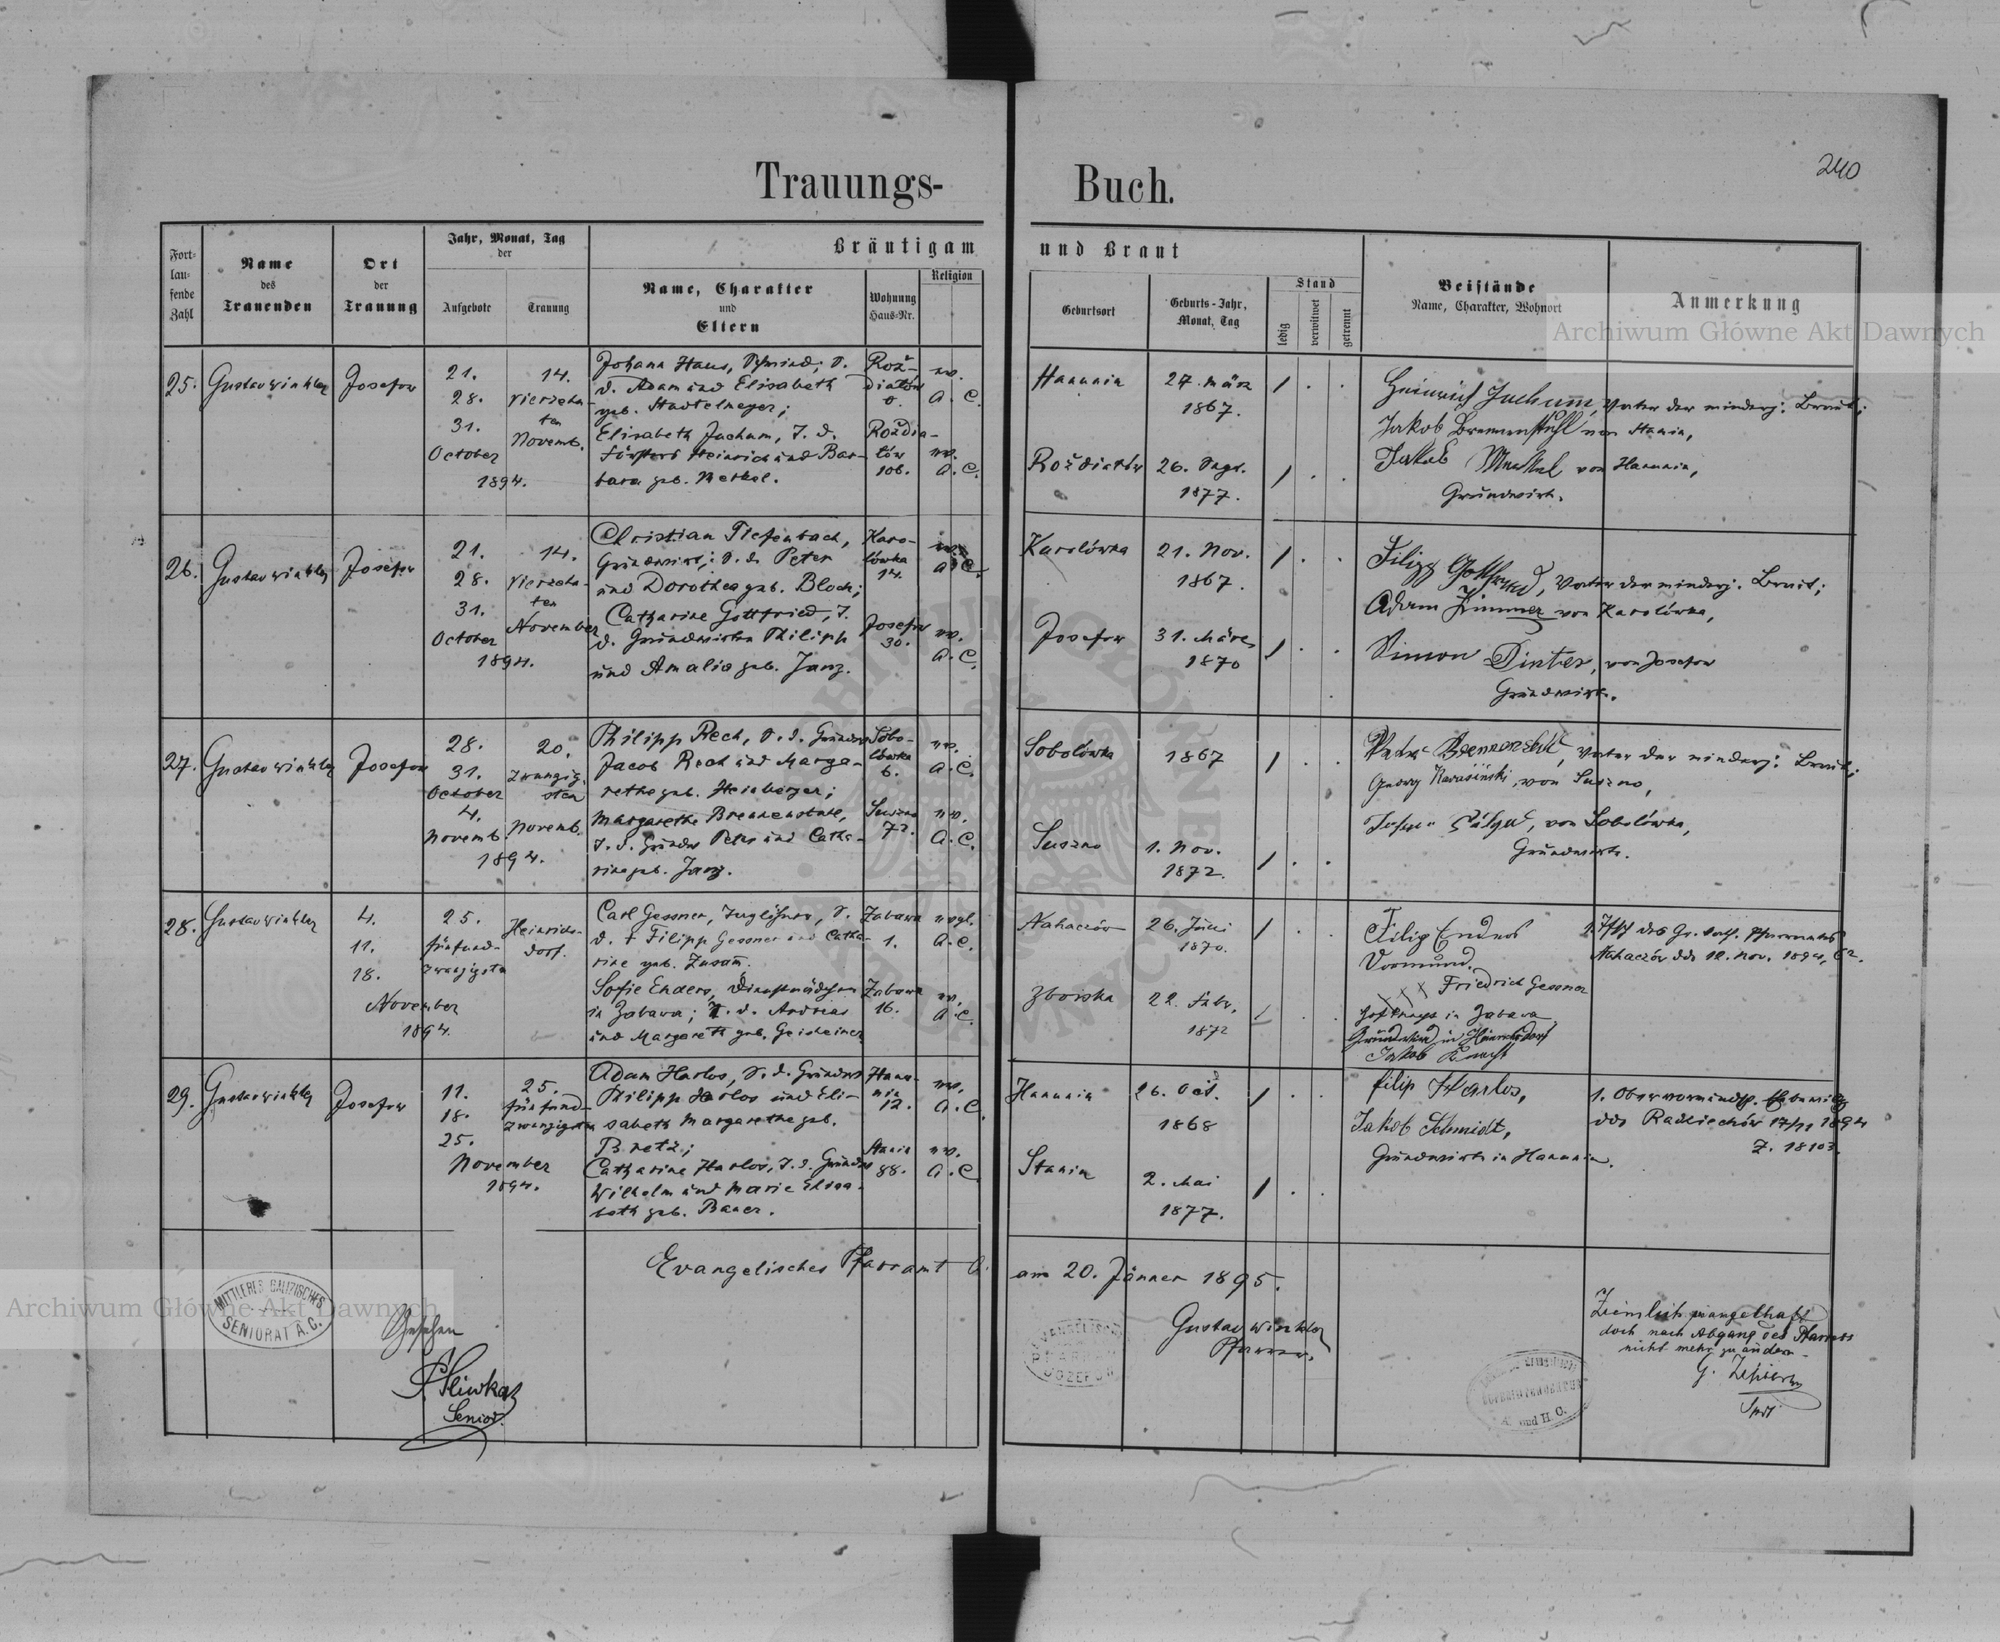 240
Trauungs-Buch.
Fort-
lau-
fende
Zahl
Name
des
Trauenden
Ort
der
Trauung
Jahr, Monat, Tag
der
Aufgebote
Trauung
Bräutigam und Braut
Name, Charakter
und
Eltern
Wohnung
Haus-Nr.
Religion
Geburtsort
Geburts-Jahr,
Monat, Tag
Stand
ledig
verwitwet
getrennt
Beistände
Name, Charakter, Wohnort
Anmerkung
Archiwum Główne Akt Dawnych
25.
Gustav Winkler
Josefow
21.
28.
31.
October
1894.
14.
vierzehn-
ten
Novemb.
Johann Haus, Schmied; S.
d. Adam und Elisabeth
geb. Stadtelmeyer;
Elisabeth Juchum, T. d.
Försters Heinrich und Bar-
bara geb. Merkel.
Rož-
diatów
Roždia-
tów
106.
ev.
A. C.
ev.
A. C.
Hanunin
27. März
1867.
Roždiatów
26. Sept.
1877.
Heinrich Juchum, Vater der minderj. Braut;
Jakob Bremenstuhl von Stanin,
Jakob Merkel von Hanunin,
Grundwirth.
26.
Gustav Winkler
Josefow
21.
28.
31.
October
1894.
14.
vierzehn-
ten
November
Christian Tiefenbach,
Grundwirt; S. d. Peter
und Dorothea geb. Bloch;
Catharine Gottfried, T.
d. Grundwirten Philipp
und Amalie geb. Janz.
Karo-
lówka
14.
Josefow
30.
ev.
A. C.
ev.
A. C.
Karolówka
21. Nov.
1867.
Josefow
31. März
1870
Filipp Gottfried, Vater der minderj. Braut;
Adam Zimmer von Karolówka,
Simon Dinter, von Josefow
Grundwirte.
27.
Gustav Winkler
Josefow
28.
31.
October
4.
Novemb.
1894.
20.
zwanzig-
sten
Novemb.
Philipp Rech, S. d. Grundw.
Jacob Rech und Marga-
rethe geb. Heinberger;
Margarethe Bremenstuhl,
T. d. Grundw. Peter und Catha-
rine geb. Janz.
Sobo-
lówka
6.
Suszno
72.
ev.
A. C.
ev.
A. C.
Sobolówka
1867
Suszno
1. Nov.
1872.
Peter Bremenstuhl, Vater der minderj. Braut;
Georg, von Suszno,
von Sobolówka,
Grundwirte.
28.
Gustav Winkler
4.
11.
18.
November
1894.
25.
fünfund-
zwanzigsten
Heinrichs-
dorf.
Carl Gessner, S.
d. + Filipp Gessner und Catha-
rine geb. Zusam.
Sofie Enders, Dienstmädchen
in Zabawa; T. d. Andreas
und Margareth geb. Geisheimer
Zabawa
1.
Zabawa
16.
evgl.
A. C.
ev.
A. C.
Nahaczów
26. Juni
1870.
Zboiska
22. Febr.
1872
Filip Enders
Vormund.
Friedrich Gessner
+++
in Zabawa
Grundwirth in Heinrichsdorf
Jakob Knecht
Nahaczów dto 12. Nov. 1894, 62.
29.
Gustav Winkler
Josefow
11.
18.
25.
November
1894.
25.
fünfund-
zwanzigsten
Adam Harlos, S. d. Grundw.
Philipp Harlos und Eli-
sabeth Margarethe geb.
Bretz;
Catharine Harlos, T. d. Grundw.
Wilhelm und Marie Elisa-
beth geb. Bauer.
Hanu-
nin
12.
Stanin
88.
ev.
A. C.
ev.
A. C.
Hanunin
26. Oct.
1868
Stanin
2. Mai
1877.
Filip Harlos,
Jakob Schmidt,
Grundwirte in Hanunin.
1. Obervormundsch.
ddo Radziechów 17/11 1894
Z. 18103.
Evangelisches Pfarramt
am 20. Jänner 1895.
Gustav Winkler
Pfarrer.
MITTLERES GALIZISCHES
SENIORAT A.C.
Gesehen
Senior.
EVANGELISCHES
PFARRAMT
JOZEFOW
A. und H. C.
Ziemlich mangelhaft
doch nach Abgang des Pfarrers
nicht mehr zu ändern.
Archiwum Główne Akt Dawnych
ARCHIWUM GŁÓWNE AKT DAWNYCH